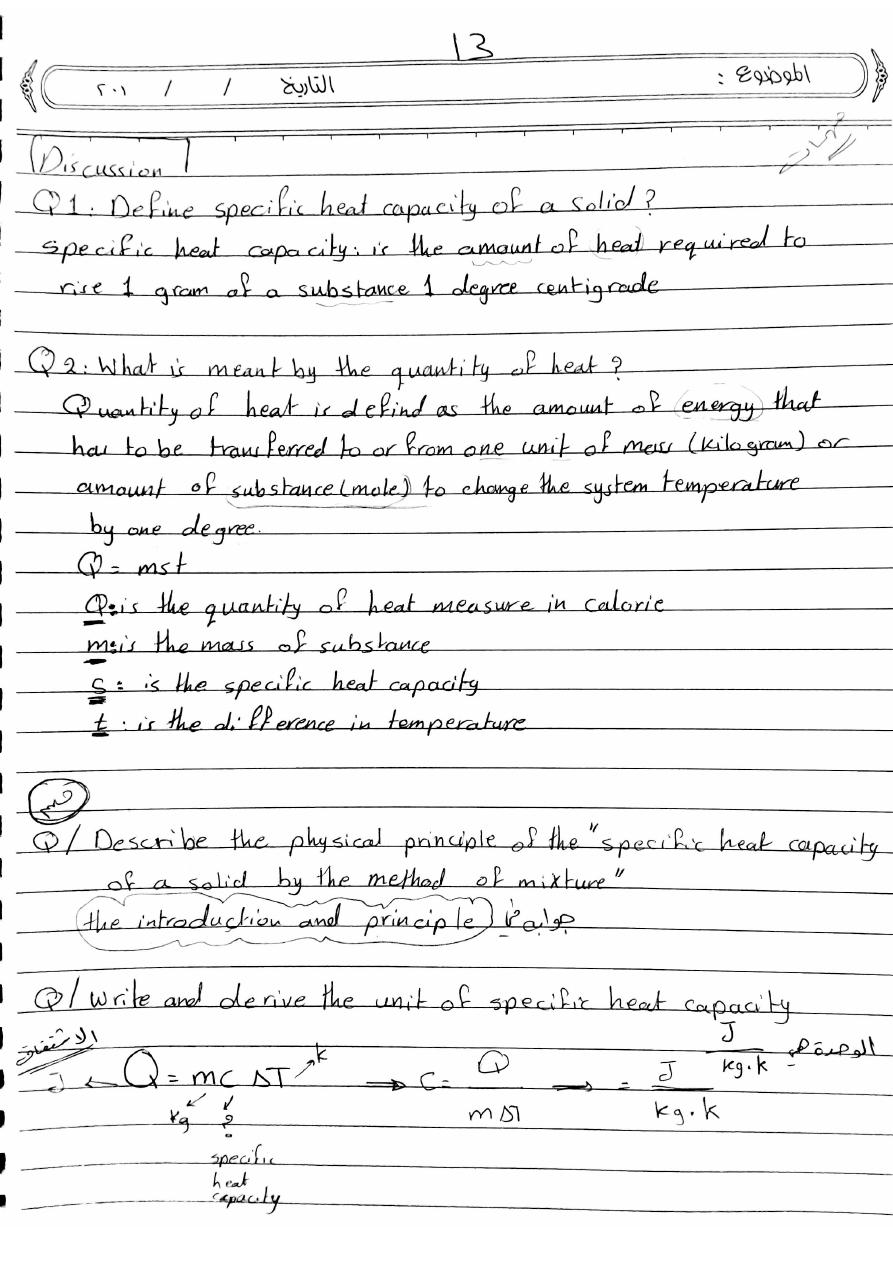 13
الموضوع : التاريخ / / ٢٠١
Discussion
Q1: Define specific heat capacity of a solid?
specific heat capacity: is the amount of heat required to
rise 1 gram of a substance 1 degree centigrade
Q2: What is meant by the quantity of heat?
Quantity of heat is defind as the amount of energy that
has to be transferred to or from one unit of mass (kilogram) or
amount of substance (mole) to change the system temperature
by one degree.
Q = mst
Q: is the quantity of heat measure in calorie
m: is the mass of substance
s: is the specific heat capacity
t: is the difference in temperature
Q/ Describe the physical principle of the "specific heat capacity
of a solid by the method of mixture"
(the introduction and principle) جوابه
Q/ Write and derive the unit of specific heat capacity
الاشتقاق الوحدة هي J / kg.k
J ← Q = mc ΔT → k → C = Q / mΔT → = J / kg.k
kg ?
specific
heat
capacity